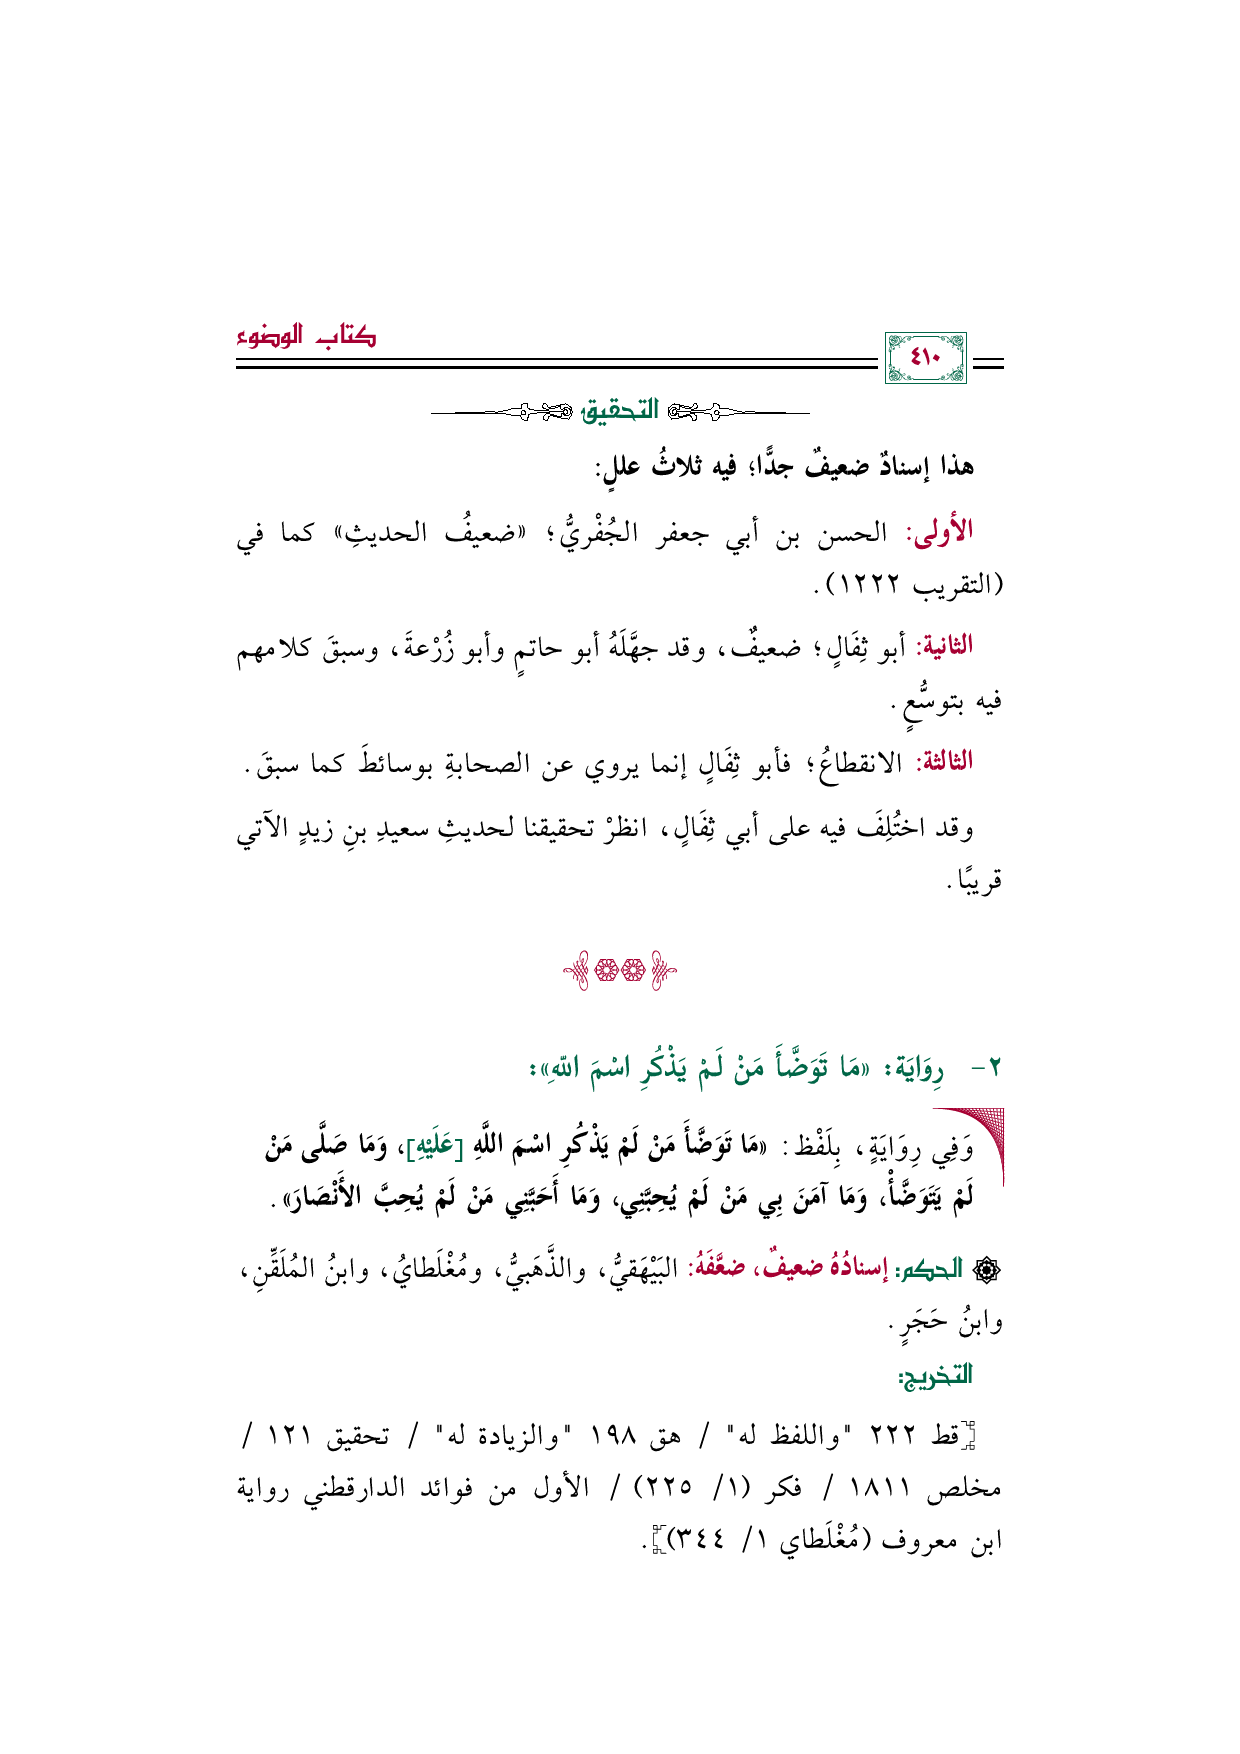 كتاب الوضوء
٤١٠
التحقيق
هذا إسنادٌ ضعيفٌ جدًّا؛ فيه ثلاثُ عللٍ:
الأولى: الحسن بن أبي جعفر الجُفْريُّ؛ «ضعيفُ الحديثِ» كما في
(التقريب ١٢٢٢).
الثانية: أبو ثِفَالٍ؛ ضعيفٌ، وقد جهَّلَهُ أبو حاتمٍ وأبو زُرْعةَ، وسبقَ كلامهم
فيه بتوسُّعٍ.
الثالثة: الانقطاعُ؛ فأبو ثِفَالٍ إنما يروي عن الصحابةِ بوسائطَ كما سبقَ.
وقد اختُلِفَ فيه على أبي ثِفَالٍ، انظرْ تحقيقنا لحديثِ سعيدِ بنِ زيدٍ الآتي
قريبًا.
٢- رِوَايَة: «مَا تَوَضَّأَ مَنْ لَمْ يَذْكُرِ اسْمَ اللهِ»:
وَفِي رِوَايَةٍ، بِلَفْظ: «مَا تَوَضَّأَ مَنْ لَمْ يَذْكُرِ اسْمَ اللَّهِ [عَلَيْهِ]، وَمَا صَلَّى مَنْ
لَمْ يَتَوَضَّأْ، وَمَا آمَنَ بِي مَنْ لَمْ يُحِبَّنِي، وَمَا أَحَبَّنِي مَنْ لَمْ يُحِبَّ الأَنْصَارَ».
الحكم: إسنادُهُ ضعيفٌ، ضعَّفَهُ: البَيْهَقيُّ، والذَّهَبيُّ، ومُغْلَطايُ، وابنُ المُلَقِّنِ،
وابنُ حَجَرٍ.
التخريج:
[قط ٢٢٢ "واللفظ له" / هق ١٩٨ "والزيادة له" / تحقيق ١٢١ /
مخلص ١٨١١ / فكر (١/ ٢٢٥) / الأول من فوائد الدارقطني رواية
ابن معروف (مُغْلَطاي ١/ ٣٤٤)].